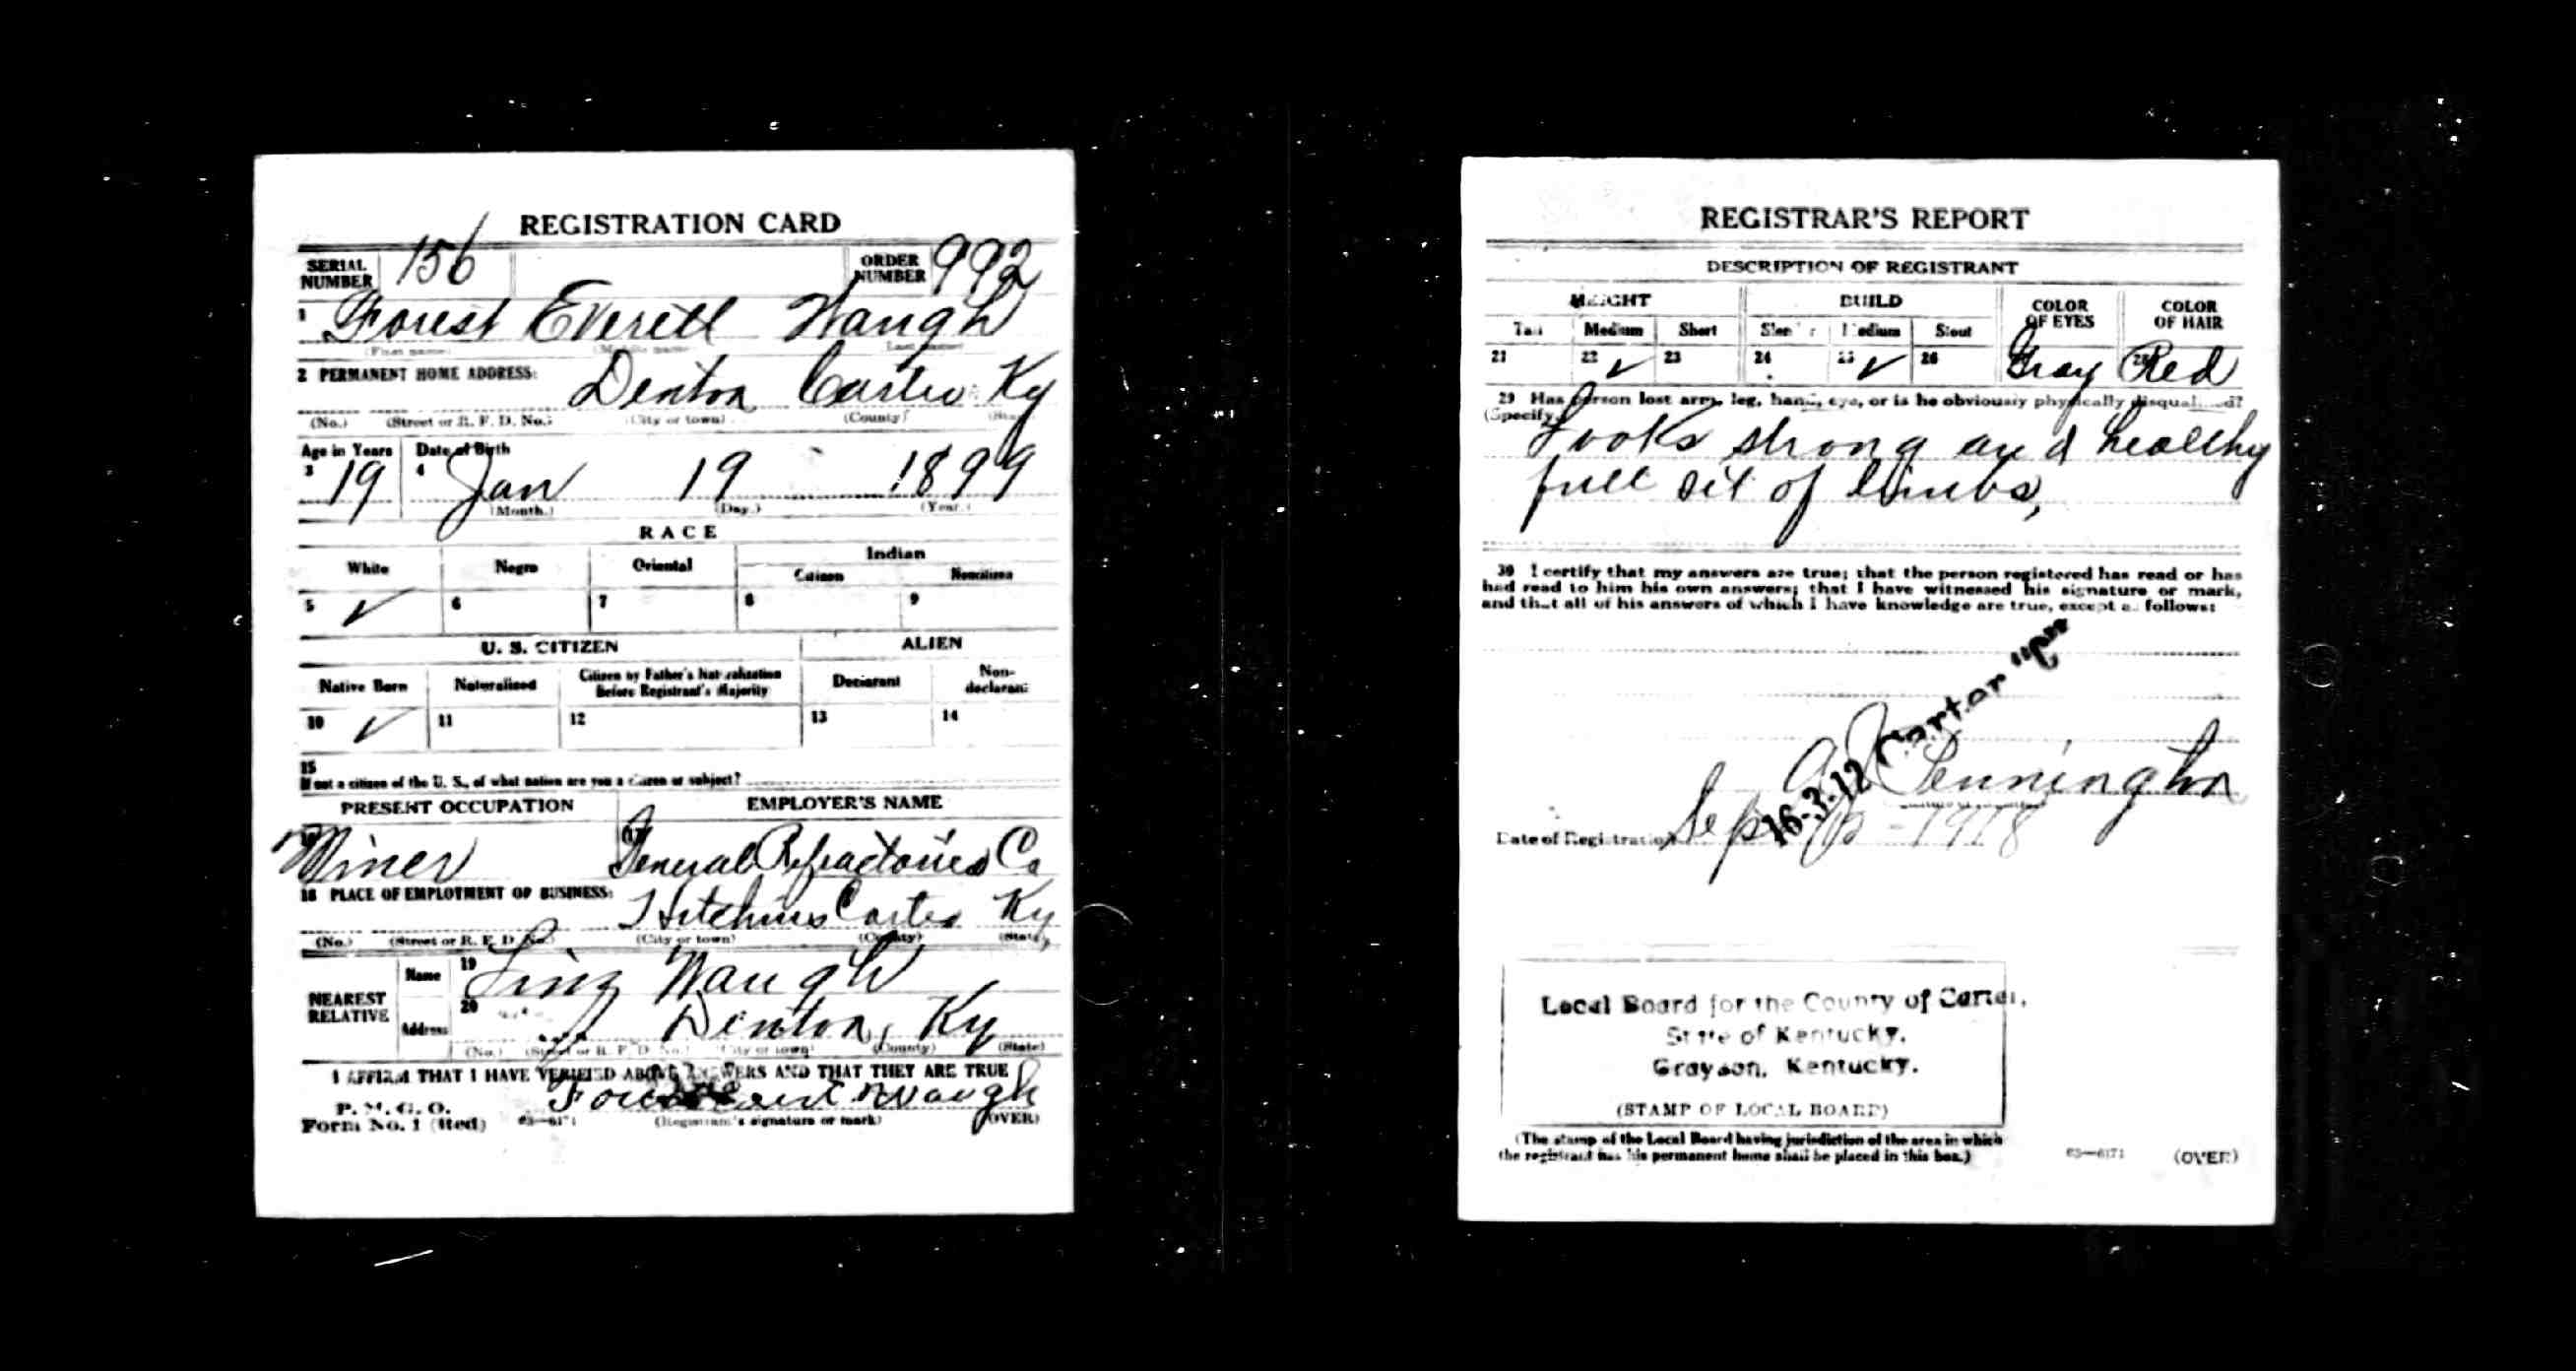 REGISTRATION CARD
SERIAL NUMBER 156 ORDER NUMBER 992
1 Forest Everett Waugh
(First name) (Middle name) (Last name)
2 PERMANENT HOME ADDRESS:
Denton Carter Ky
(No.) (Street or R. F. D. No.) (City or town) (County) (State)
Age in Years Date of Birth
3 19 4 Jan 19 1899
(Month.) (Day.) (Year.)
RACE
White Negro Oriental Indian
Citizen Noncitizen
5 ✓ 6 7 8 9
U. S. CITIZEN ALIEN
Native Born Naturalized Citizen by Father's Naturalization Before Registrant's Majority Declarant Non-declarant
10 ✓ 11 12 13 14
15
If not a citizen of the U. S., of what nation are you a citizen or subject?
PRESENT OCCUPATION EMPLOYER'S NAME
Miner 17 General Refractories Co
18 PLACE OF EMPLOYMENT OR BUSINESS:
Hitchins Carter Ky
(No.) (Street or R. F. D. No.) (City or town) (County) (State)
NEAREST RELATIVE
Name 19 Waugh
Address 20 Denton, Ky
(No.) (Street or R. F. D. No.) (City or town) (County) (State)
I AFFIRM THAT I HAVE VERIFIED ABOVE ANSWERS AND THAT THEY ARE TRUE
P. M. G. O.
Form No. 1 (Red) 03—6171 (Registrant's signature or mark) (OVER)
Waugh
REGISTRAR'S REPORT
DESCRIPTION OF REGISTRANT
HEIGHT BUILD COLOR OF EYES COLOR OF HAIR
Tall Medium Short Slender Medium Stout
21 22 ✓ 23 24 25 ✓ 26 Gray 28 Red
29 Has person lost arm, leg, hand, eye, or is he obviously physically disqualified?
(Specify.)
Looks strong and healthy
full sit of limbs,
30 I certify that my answers are true; that the person registered has read or has
had read to him his own answers; that I have witnessed his signature or mark,
and that all of his answers of which I have knowledge are true, except as follows:
16-3-12 Carter "C"
Pennington
Date of Registration Sep 1918
Local Board for the County of Carter,
State of Kentucky.
Grayson, Kentucky.
(STAMP OF LOCAL BOARD)
(The stamp of the Local Board having jurisdiction of the area in which
the registrant has his permanent home shall be placed in this box.)
03—6171 (OVER)